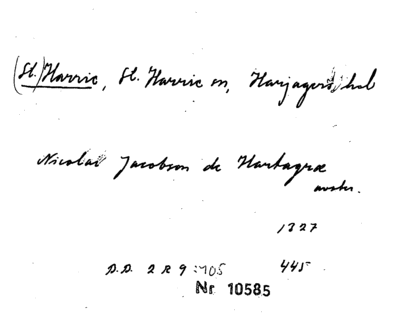 (St.) Harrie, St. Harrie sn, Harjagers hd
Nicolai Jacobson de Hartagræ
1327
D.D. 2 R 9:105 445
Nr 10585